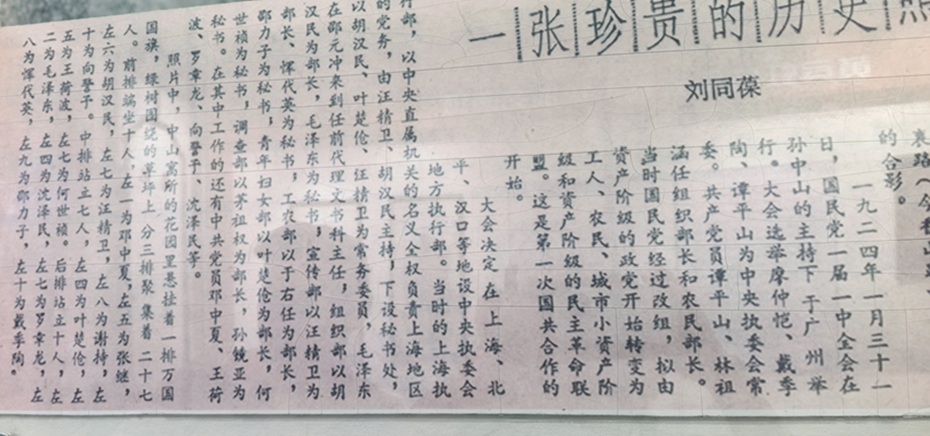 一张珍贵的历史照
刘同葆
的合影。
一九二四年一月三十一
日，国民党一届一中全会在
孙中山的主持下于广州举
行。大会选举廖仲恺、戴季
陶、谭平山为中央执委会常
委。共产党员谭平山、林祖
涵任组织部长和农民部长。
当时国民党经过改组，拟由
资产阶级的政党开始转变为
工人、农民、城市小资产阶
级和资产阶级的民主革命联
盟。这是第一次国共合作的
开始。
大会决定在上海、北
平、汉口等地设中央执委会
地方执行部。当时的上海执
行部，以中央直属机关的名义全权负责上海地区
的党务，由汪精卫、胡汉民主持，下设秘书处，
以胡汉民、叶楚伧、汪精卫为常务委员，毛泽东
在邵元冲来到任前代理文书科主任，组织部以胡
汉民为部长，毛泽东为秘书；宣传部以汪精卫为
部长，恽代英为秘书；工农部以于右任为部长，
邵力子为秘书；青年妇女部以叶楚伧为部长，何
世祯为秘书，调查部以茅祖权为部长，孙镜亚为
秘书。在其中工作的还有中共党员邓中夏、王荷
波、罗章龙、向警予、沈泽民等。
照片中，中山寓所的花园里悬挂着一排万国
国旗，绿树围绕的草坪上，分三排聚集着二十七
人。前排端坐十人，左一为邓中夏，左五为张继，
左六为胡汉民，左七为汪精卫，左八为谢持，左
十为向警予。中排站立七人，左四为叶楚伧，左
五为王荷波，左七为何世祯。后排站立十人，左
二为毛泽东，左四为沈泽民，左七为罗章龙，左
八为恽代英，左九为邵力子，左十为戴季陶。